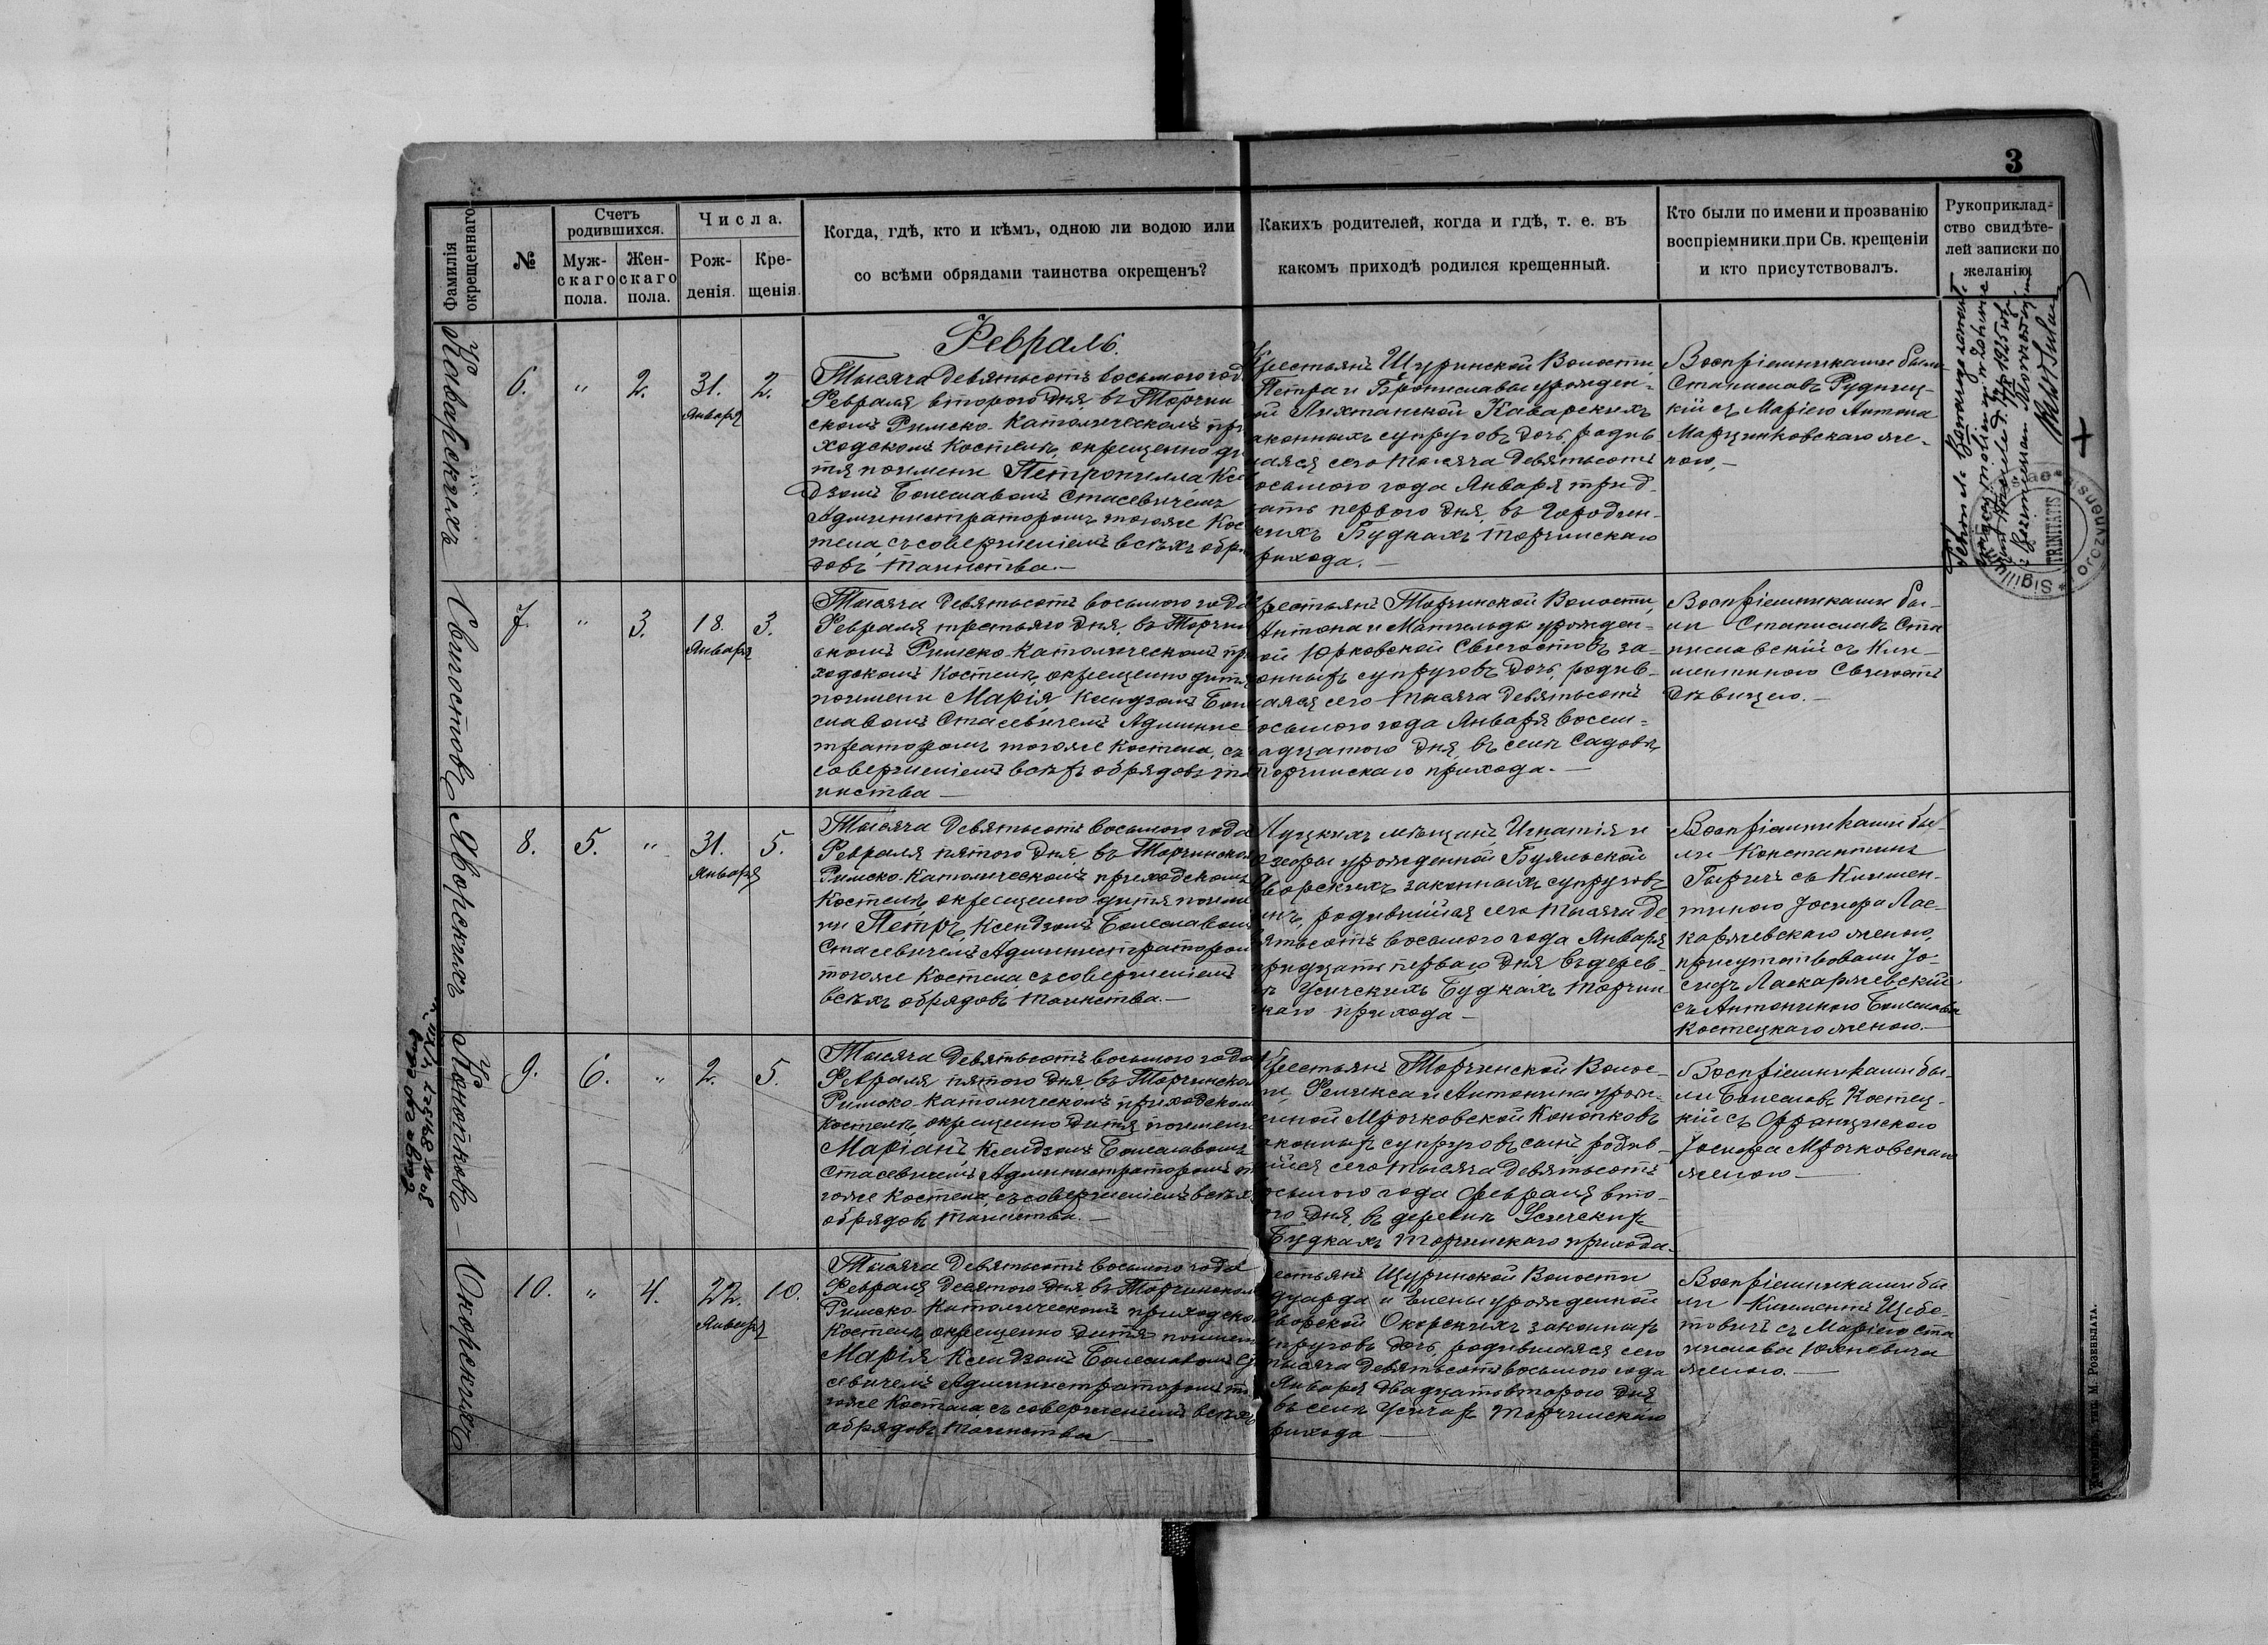 3
Фамилія окрещеннаго.
№
Счетъ родившихся.
Мужскаго пола.
Женскаго пола.
Числа.
Рожденія.
Крещенія.
Когда, гдѣ, кто и кѣмъ, одною ли водою или
со всѣми обрядами таинства окрещенъ?
Каихъ родителей, когда и гдѣ, т. е. въ
какомъ приходѣ родился крещенный.
Кто были по имени и прозванію
воспріемники при Св. крещеніи
и кто присутствовалъ.
Рукоприклад-
ство свидѣте-
лей записки по
желанію.
Февраль.
Коварскихъ
6. " 2. 31. Января 2.
Тысяча девятьсотъ восьмого год
Февраля второго дня, въ Торчин
скомъ Римско-Католическомъ при
ходскомъ Костелѣ, окрещено ди
тя по имени Петронилла Ксен
дзомъ Болеславомъ Стасевичемъ
Администраторомъ тогоже Кос
тела, съ совершеніемъ всѣхъ обря
довъ таинства.—
Крестьянъ Щуринской Волости,
Петра и Брониславы урожден-
ой Каварскихъ
аконныхъ супруговъ дочь, родив
шаяся сего тысяча девятьсотъ
осьмого года Января трид-
цать первого дня, въ Городин-
скихъ Будкахъ Торчинскаго
рихода.—
Воспріемниками были
Станиславъ Рудниц-
кій съ Маріею Антона
Марцинковскаго же-
ною.—
Свиностовъ
7. " 3. 18. Января 3.
Тысяча девятьсотъ восьмого года
Февраля третьяго дня, въ Торчин
скомъ Римско-Католическомъ при
ходскомъ Костелѣ, окрещено дитя
по имени Марія, Ксендзомъ Боле
славомъ Стасевичемъ Админис
траторомъ тогоже Костела, съ
совершеніемъ всѣхъ обрядовъ таи
нства—
рестьянъ Торчинской Волости,
Антона и Матильды урожден-
ой Юрковской за-
онныхъ супруговъ дочь, родив-
шаяся сего тысяча девятьсотъ
осьмого года Января восем-
надцатого дня, въ селѣ Садовѣ
Торчинскаго прихода.—
Воспріемниками бы-
ли Станиславъ Ста
ниславскій съ Кли-
ментиною
дѣвицею.—
Яворскихъ
8. 5. " 31. Января 5.
Тысяча девятьсотъ восьмого года
Февраля пятого дня, въ Торчинском
Римско-Католическомъ приходскомъ
Костелѣ, окрещено дитя по име
ни Петръ, Ксендзомъ Болеславом
Стасевичемъ Администратором
тогоже Костела, съ совершеніемъ
всѣхъ обрядовъ таинства.—
Луцкихъ мѣщанъ, Игнатія и
урожденной
Яворскихъ законныхъ супруговъ
ынъ, родившійся сего тысяча де
вятьсотъ восьмого года Января
тридцать первого дня въ дерев-
нѣ Усичскихъ Будкахъ Торчин
скаго прихода—
Воспріемниками бы-
ли Константинъ
съ Климен-
тиною Іосифа Лас-
каржевскаго женою,
присутствовали Іо-
сифъ Ласкаржевскій
съ Антониною Болеслава
Костецкаго женою.—
Конопковъ
9. 6. " 2. 5.
Тысяча девятьсотъ восьмого года
Февраля пятого дня, въ Торчинском
Римско-Католическомъ приходском
Костелѣ, окрещено дитя по имени
Маріанъ, Ксендзомъ Болеславомъ
Стасевичемъ Администраторомъ то
гоже Костела, съ совершеніемъ всѣхъ
обрядовъ таинства.—
Крестьянъ Торчинской Волос-
ти, Феликса и Антонины урож-
енной Мрочковской Конопковъ
аконныхъ супруговъ сынъ родив-
шійся сего тысяча девятьсотъ
осьмого года Февраля вто-
ого дня, въ деревнѣ Усичскихъ
Будкахъ Торчинскаго прихода—
Воспріемниками бы-
ли Болеславъ Костец-
кій съ Францишкою
Іосифа Мрочковскаго
женою—
Окорскихъ
10. " 4. 22. Января 10.
Тысяча девятьсотъ восьмого года
Февраля десятого дня, въ Торчинском
Римско-Католическомъ приходском
Костелѣ, окрещено дитя по имени
Марія Ксендзомъ Болеславомъ Ста
севичемъ Администраторомъ то
гоже Костела съ совершеніемъ всѣхъ
обрядовъ таинства—
естьянъ Щуринской Волости
дуарда и Елены урожденной
ворской Окорскихъ законныхъ
упруговъ дочь, родившаяся сего
тысяча девятьсотъ восьмого года
Января двадцать второго дня
въ селѣ Усичахъ Торчинскаго
рихода—
Воспріемниками бы
ли Климентъ Щебе-
товичъ съ Маріею Ста
нислава
женою.—
TRINITATIS
тип. М. Розенблата.